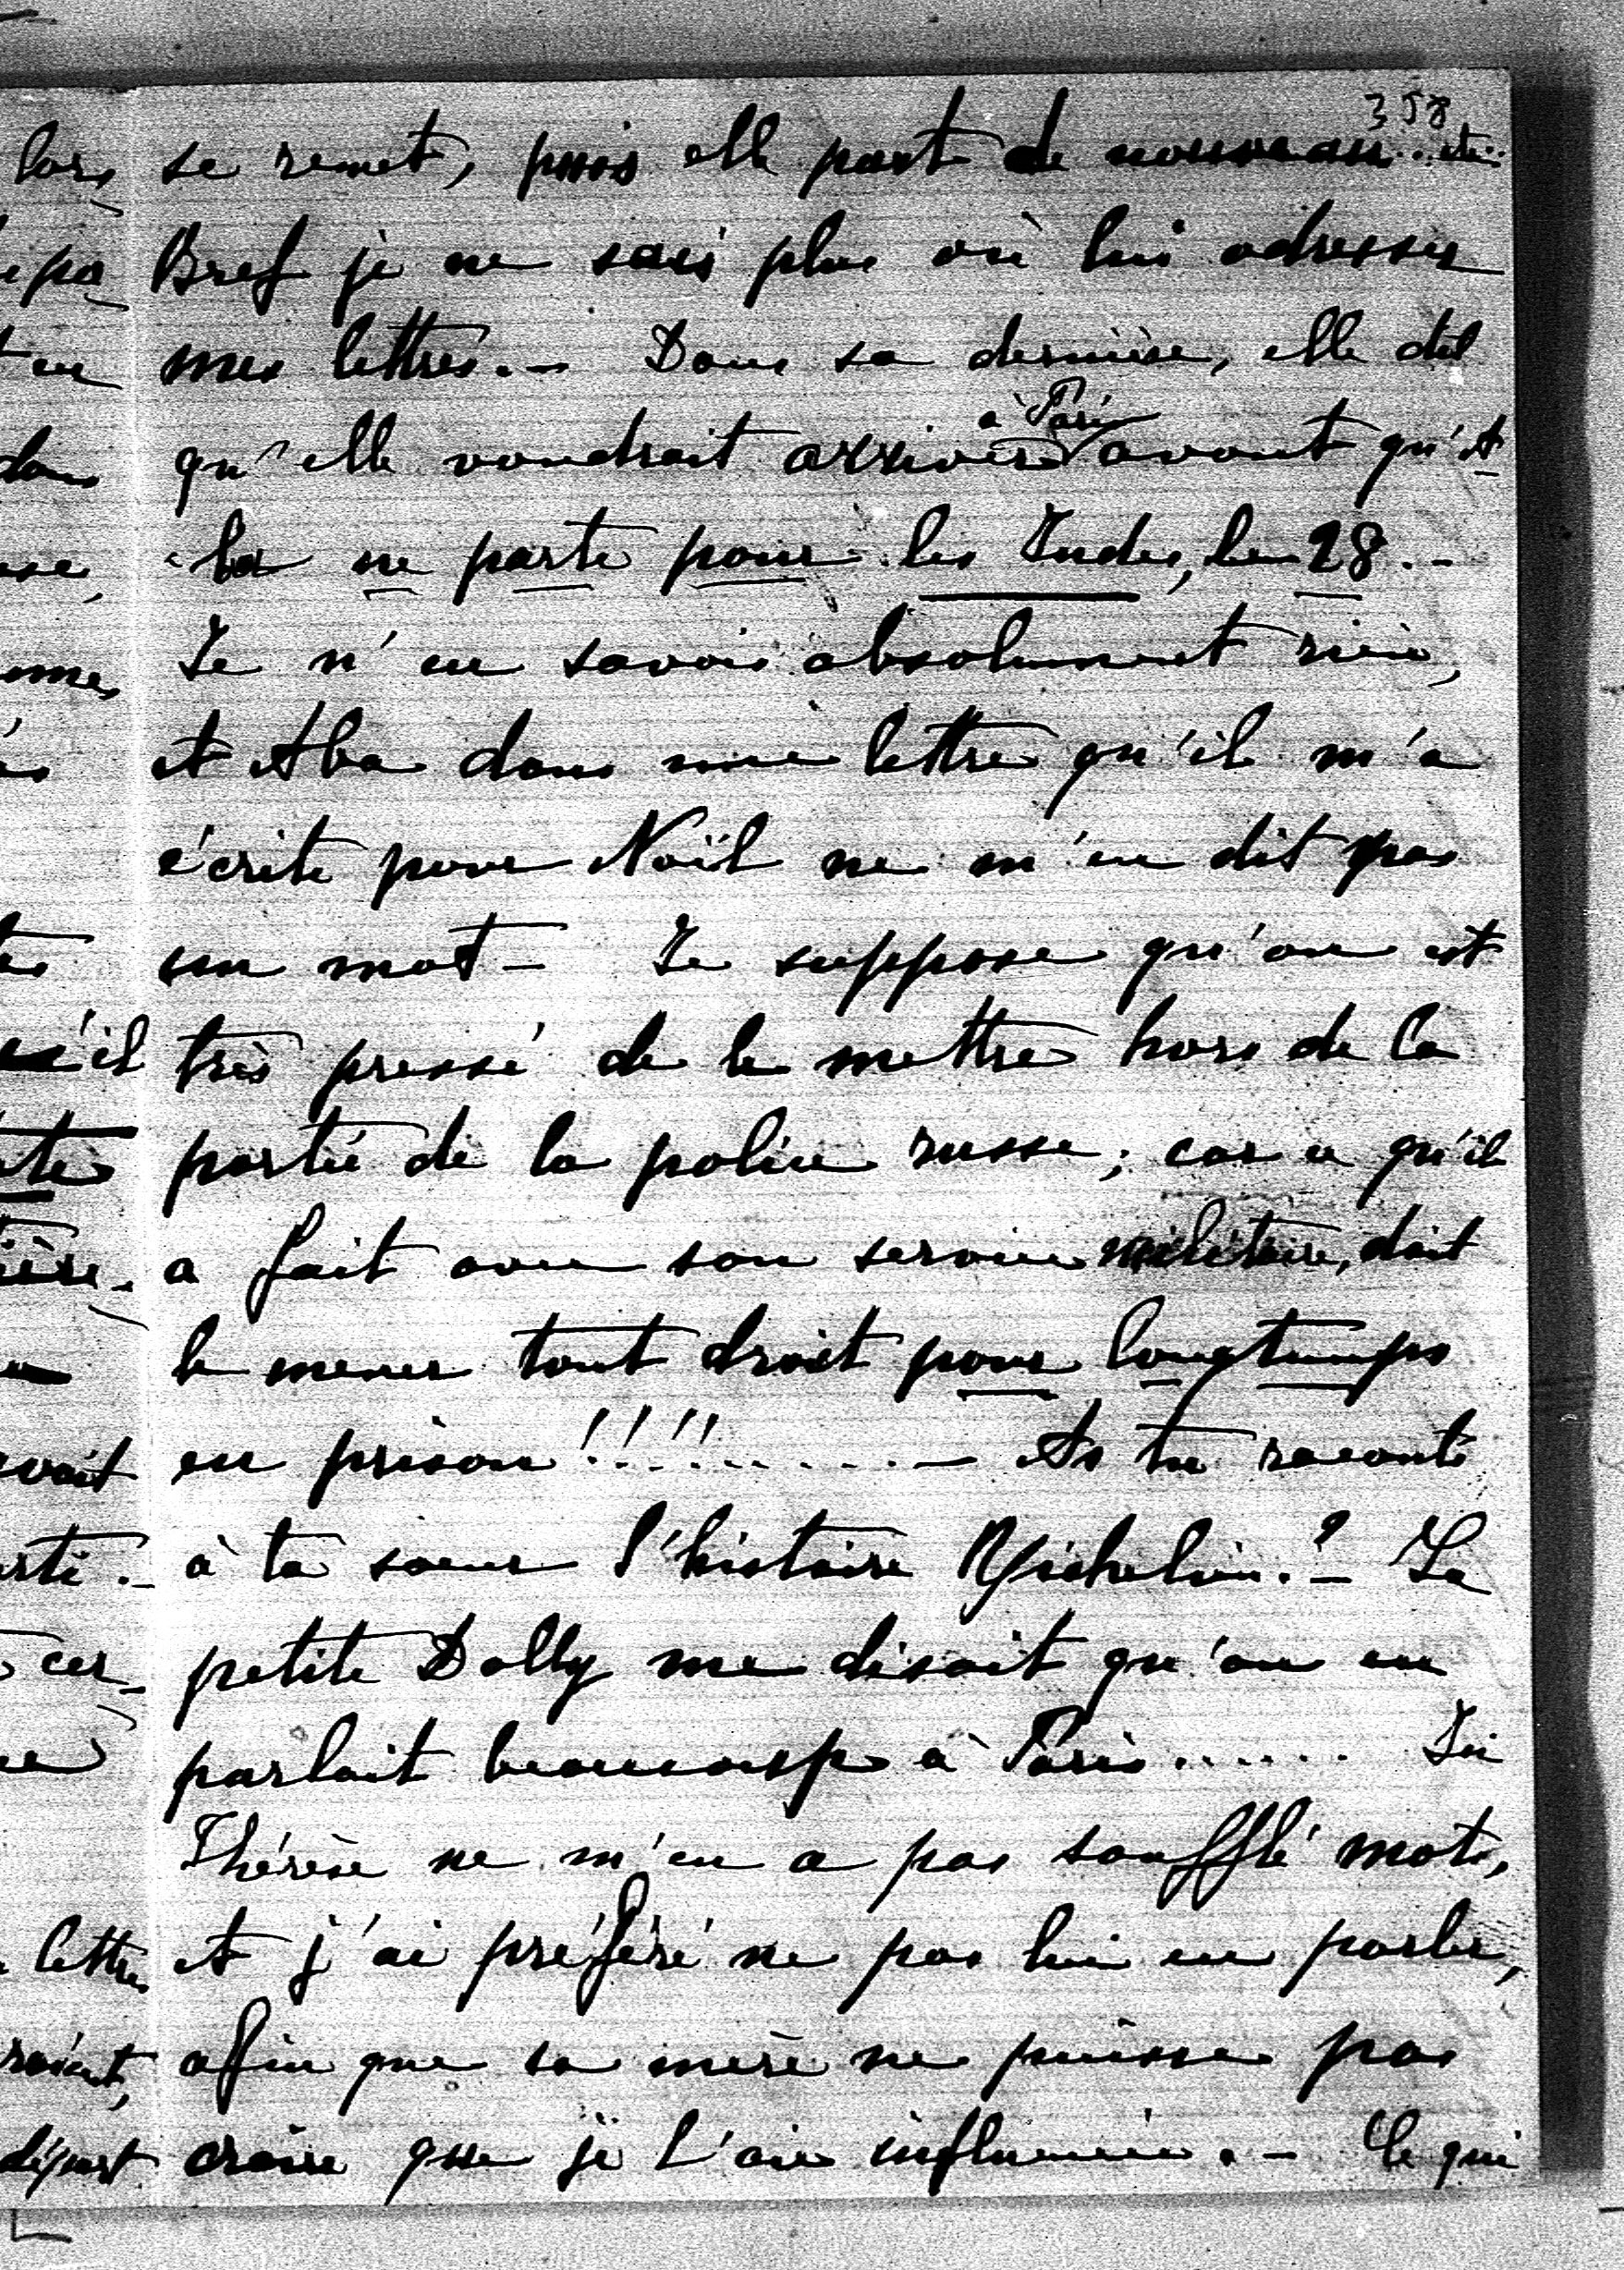 358
se remet, puis elle part de nouveau.. etc..
Bref je ne sais plus où lui adresser
mes lettres. — Dans sa dernière, elle dit
qu'elle voudrait arriver à Paris avant qu'A-
ba ne parte pour les Indes, le 28. —
Je n'en savais absolument rien,
et Aba dans une lettre qu'il m'a
écrite pour Noël ne m'en dit pas
un mot — Je suppose qu'on est
très pressé de le mettre hors de la
portée de la police russe; car ce qu'il
a fait avec son service militaire, doit
le mener tout droit pour longtemps
en prison !!!!......... — As tu raconté
à ta soeur l'histoire Michelin? — La
petite Dolly me disait qu'on en
parlait beaucoup à Paris...... Ici
Thérèse ne m'en a pas soufflé mot,
et j'ai préféré ne pas lui en parler,
afin que sa mère ne puisse pas
croire que je l'aie influencée. — Ce qui